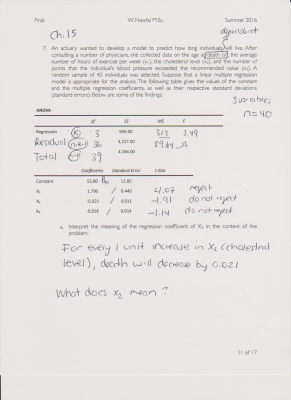 Final W. Nawfal M.Sc. Summer 2016
Ch.15
dependent
7. An actuary wanted to develop a model to predict how long individuals will live. After
consulting a number of physicians, she collected data on the age at death (y), the average
number of hours of exercise per week (x₁), the cholesterol level (x₂), and the number of
points that the individual's blood pressure exceeded the recommended value (x₃). A
random sample of 40 individuals was selected. Suppose that a linear multiple regression
model is appropriate for the analysis. The following table gives the values of the constant
and the multiple regression coefficients, as well as their respective standard deviations
(standard errors): Below are some of the findings:
3 variables
n=40
ANOVA
df SS MS F
Regression (K) 3 939.00 313 3.49
Residual (n-k-1) 36 3,227.00 89.64
Total (n-1) 39 4,166.00
Coefficients Standard Error t-Stat
Constant 55.80 11.80
X₁ 1.790 / 0.440 4.07 reject
X₂ -0.021 / 0.011 -1.91 do not reject
X₃ -0.016 / 0.014 -1.14 do not reject
a. Interpret the meaning of the regression coefficient of X₂ in the context of the
problem.
For every 1 unit increase in X₂ (cholestral
level), death will decrease by 0.021
What does x₂ mean?
11 of 17